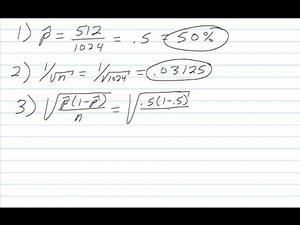 1) p̂ = 512/1024 = .5 = 50%
2) 1/√n = 1/√1024 = .03125
3) √(p̂(1-p̂)/n) = √(.5(1-.5)